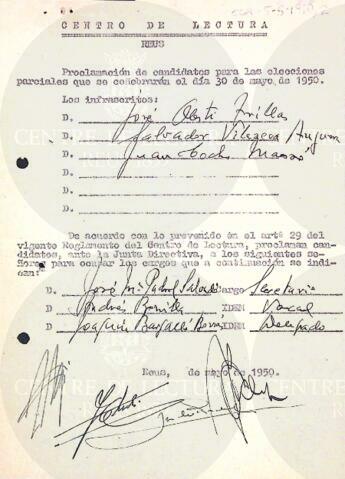 CENTRO DE LECTURA
REUS
Proclamación de candidatos para las elecciones
parciales que se celebrarán el día 30 de mayo, de 1950.
Los infrascritos:
D. José
D. Salvador Vilaseca Anguera
D. Juan
D.
D.
D.
De acuerdo con lo prevenido en el artº 29 del
vigente Reglamento del Centro de Lectura, proclaman can-
didatos, ante la Junta Directiva, a los siguientes se-
ñores para ocupar los cargos que a continuación se indi-
can:
D. José Mª cargo Secretario
D. Andrés Bonilla IDEM Vocal
D. Joaquín IDEM Delegado
Reus, de mayo de 1950.